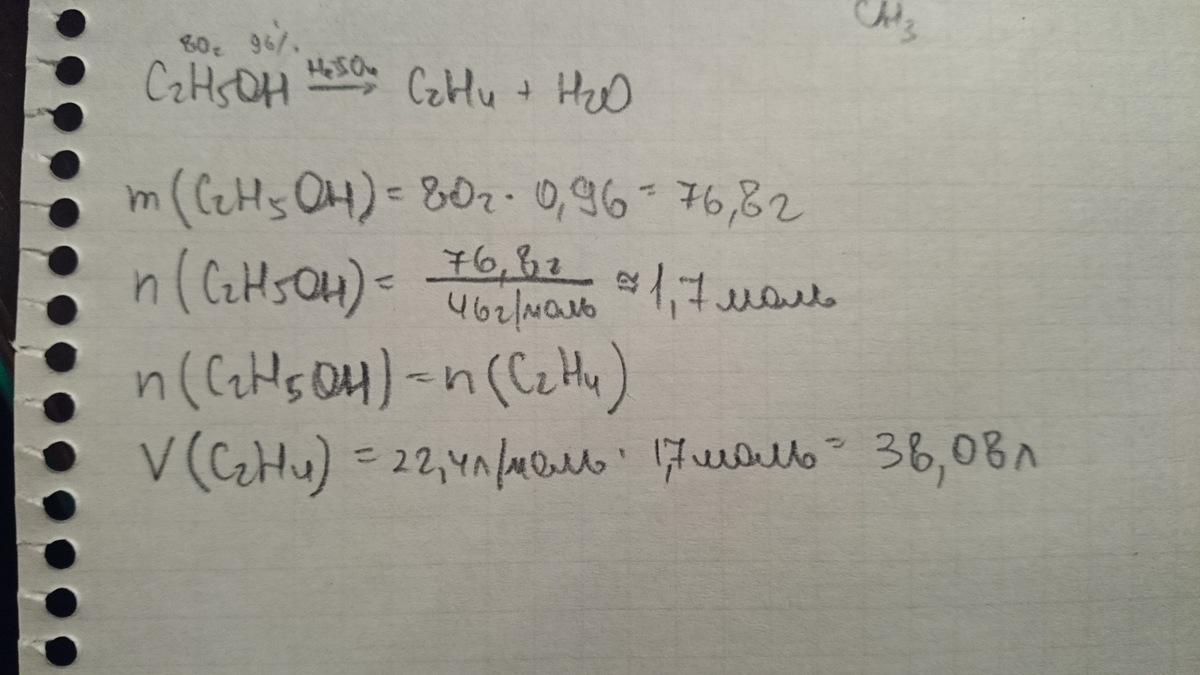 CH3
80г 96%.
C2H5OH H2SO4 → C2H4 + H2O
m(C2H5OH) = 80г · 0,96 = 76,8г
n(C2H5OH) = 76,8г / 46г/моль ≅ 1,7 моль
n(C2H5OH) = n(C2H4)
V(C2H4) = 22,4л/моль · 1,7моль = 38,08л